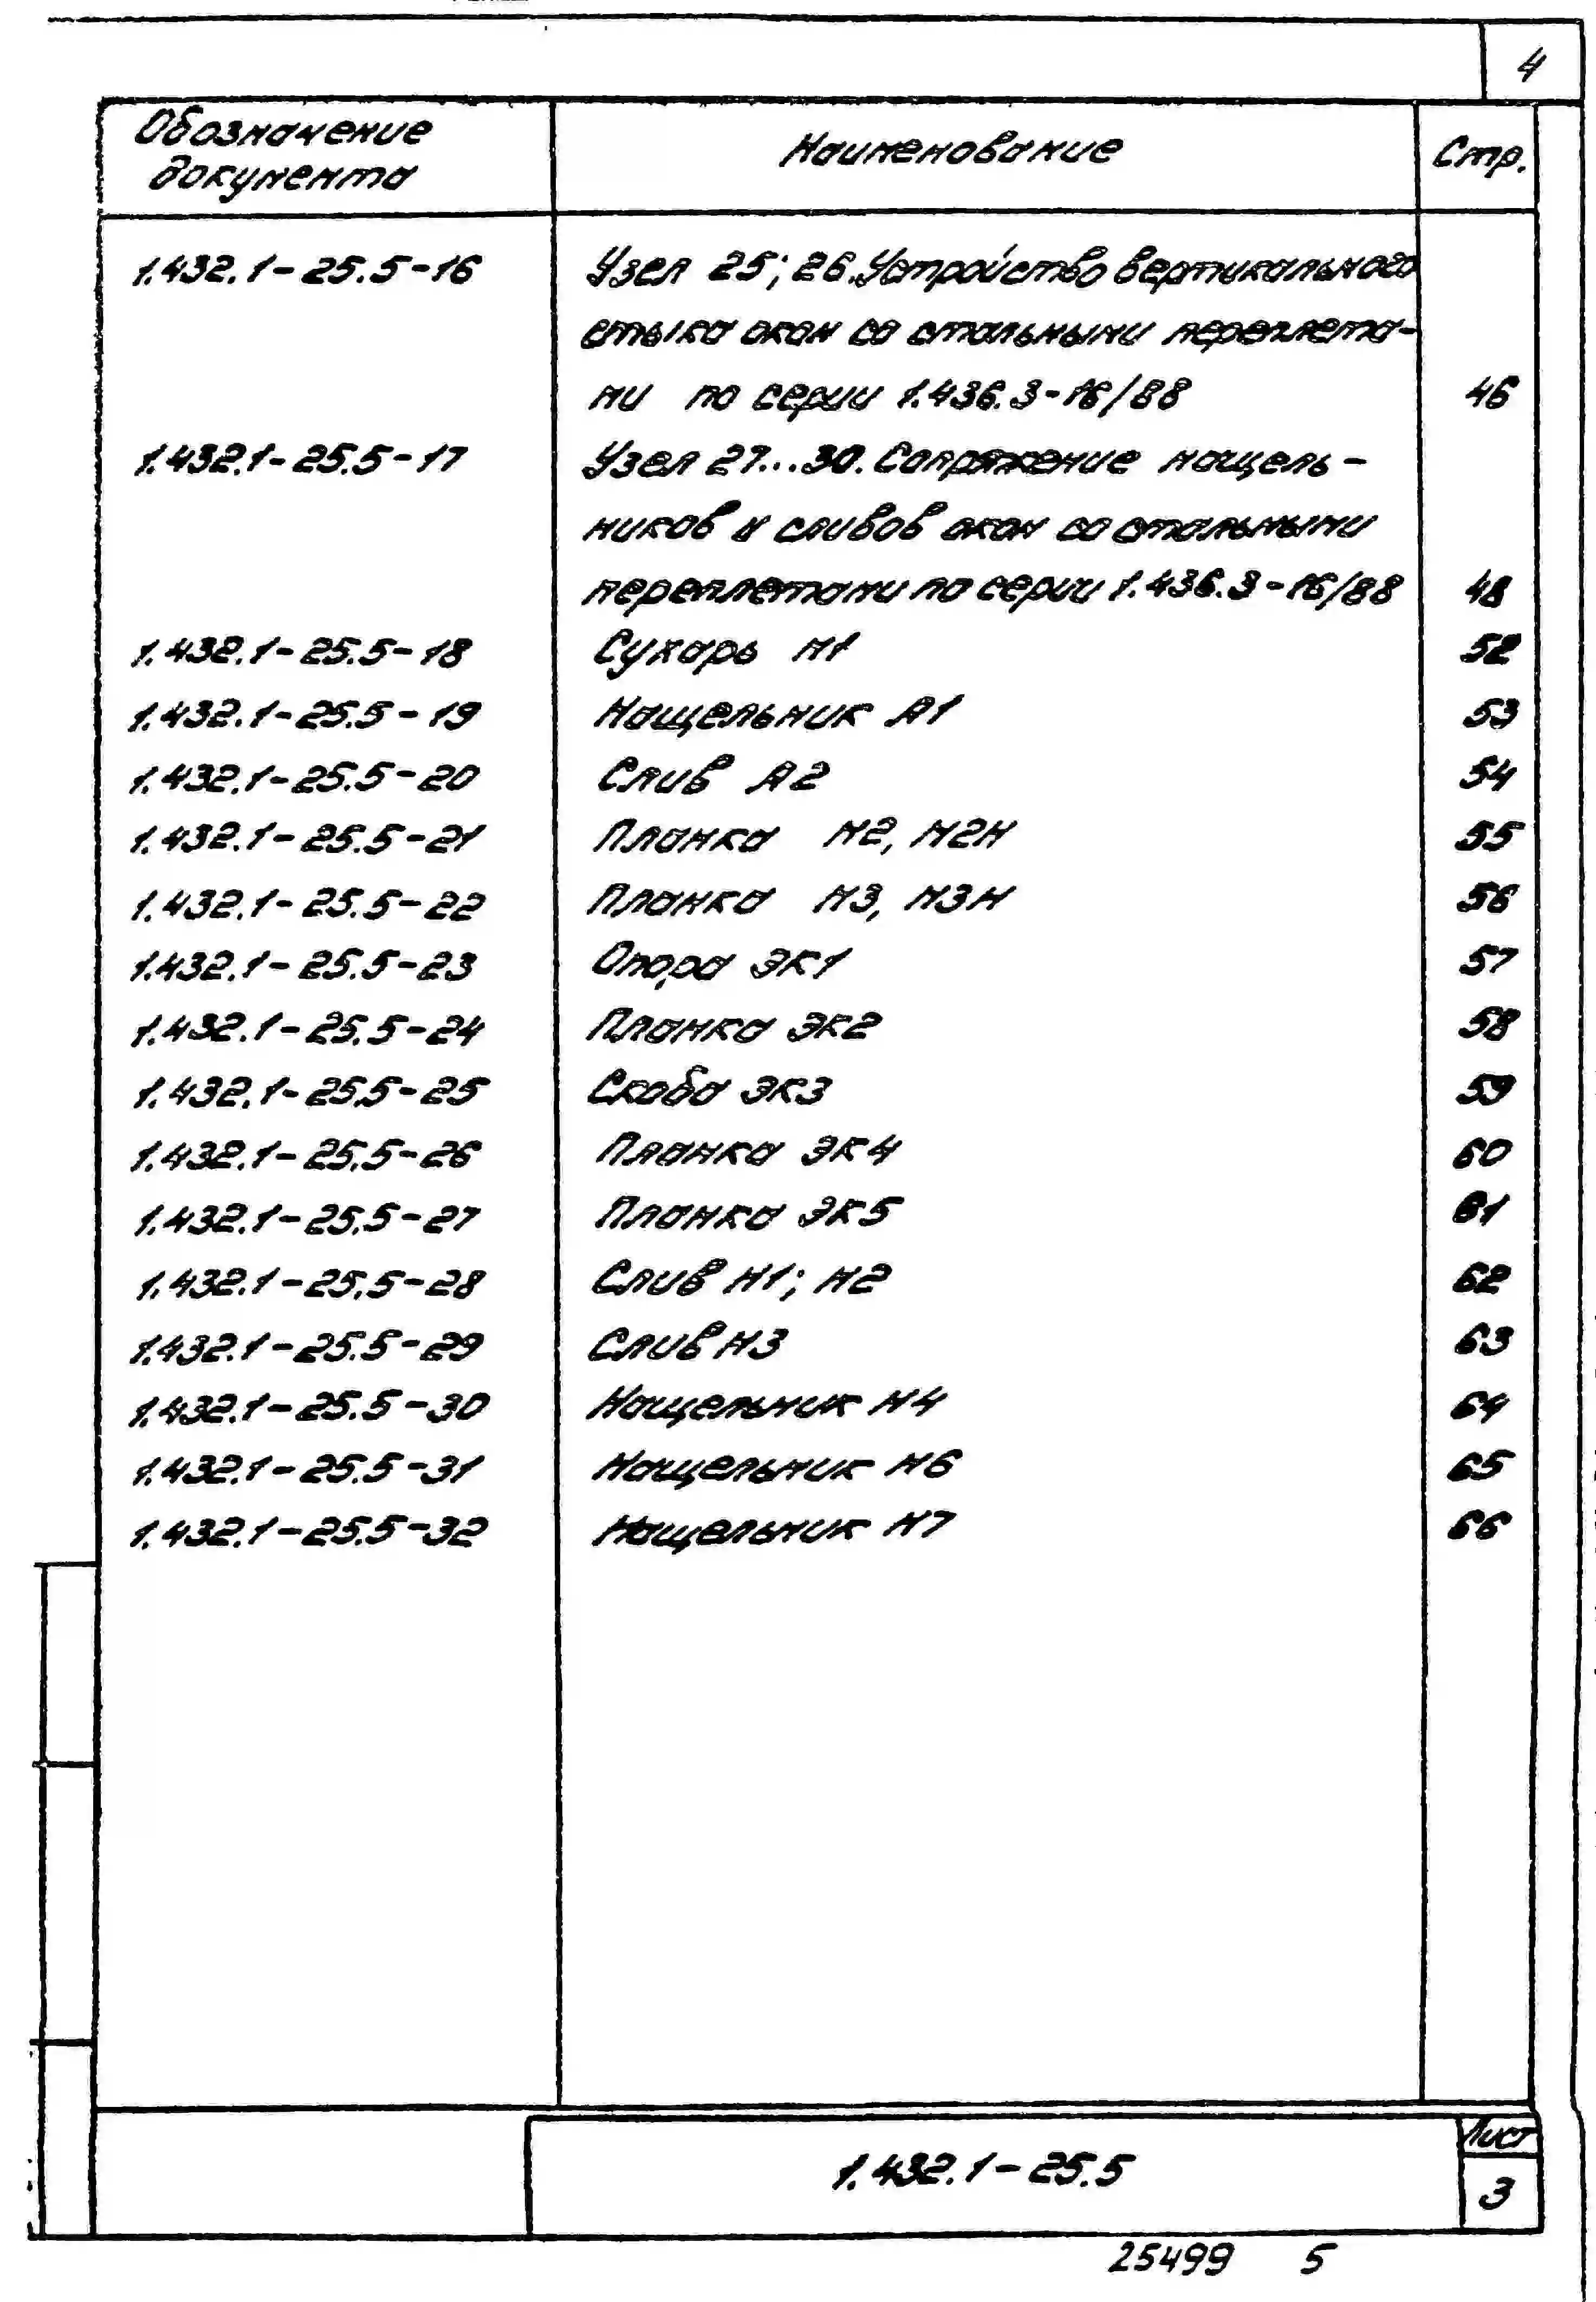 4
Обозначение документа
Наименование
Стр.
1.432.1-25.5-16 Узел 25; 26. Устройство вертикального
стыка окон со стальными переплета-
ми по серии 1.436.3-16/88 46
1.432.1-25.5-17 Узел 27...30. Сопряжение нащель-
ников и сливов окон со стальными
переплетами по серии 1.436.3-16/88 48
1.432.1-25.5-18 Сухарь М1 52
1.432.1-25.5-19 Нащельник А1 53
1.432.1-25.5-20 Слив А2 54
1.432.1-25.5-21 Планка М2, М2Н 55
1.432.1-25.5-22 Планка М3, М3Н 56
1.432.1-25.5-23 Опора ЭК1 57
1.432.1-25.5-24 Планка ЭК2 58
1.432.1-25.5-25 Скоба ЭК3 59
1.432.1-25.5-26 Планка ЭК4 60
1.432.1-25.5-27 Планка ЭК5 61
1.432.1-25.5-28 Слив Н1; Н2 62
1.432.1-25.5-29 Слив Н3 63
1.432.1-25.5-30 Нащельник Н4 64
1.432.1-25.5-31 Нащельник Н6 65
1.432.1-25.5-32 Нащельник Н7 66
1.432.1-25.5
Лист
3
25499 5